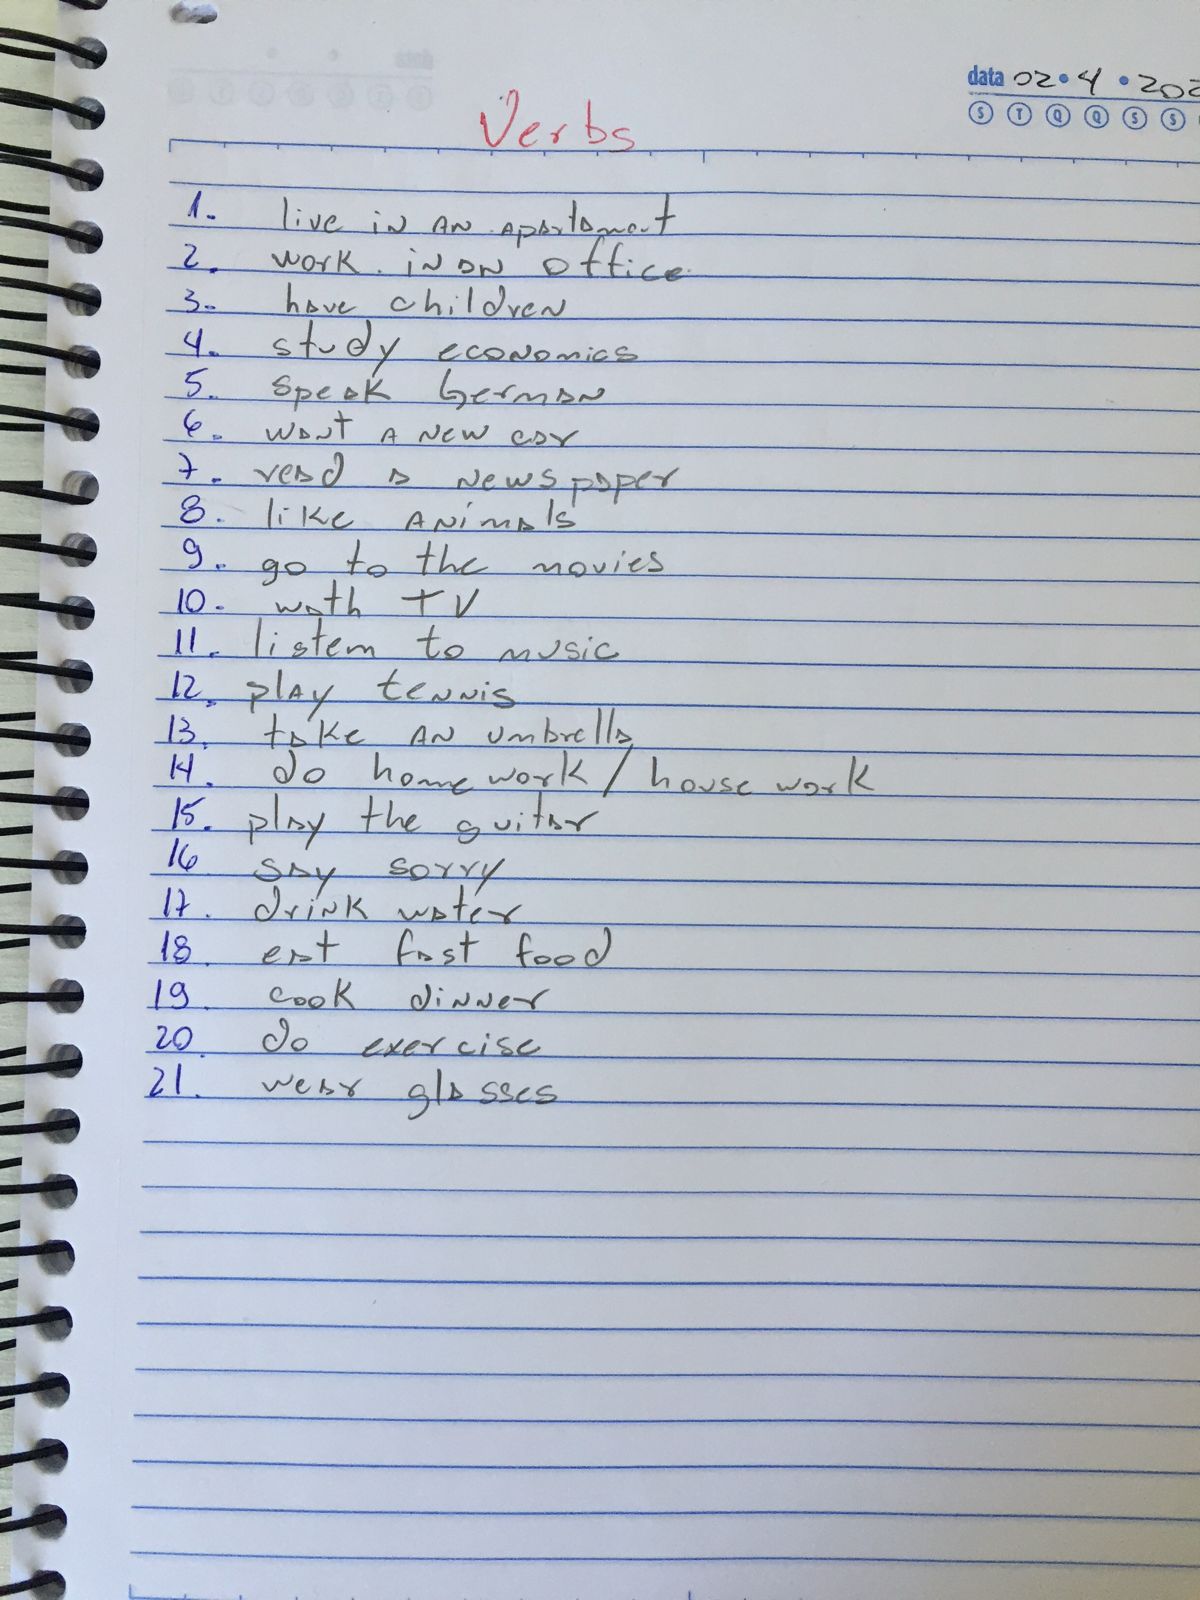 data 02 • 4 • 202
S T Q Q S S
Verbs
1. live in AN apartament
2. work in an office
3. have children
4. study economics
5. speak German
6. want A New car
7. read a Newspaper
8. like ANimals
9. go to the movies
10. wath TV
11. listem to music
12. plAy tennis
13. take AN umbrella
14. do homework / house work
15. play the guitar
16 say sorry
17. drink water
18. eat fast food
19. cook dinner
20. do exercise
21. wear glasses